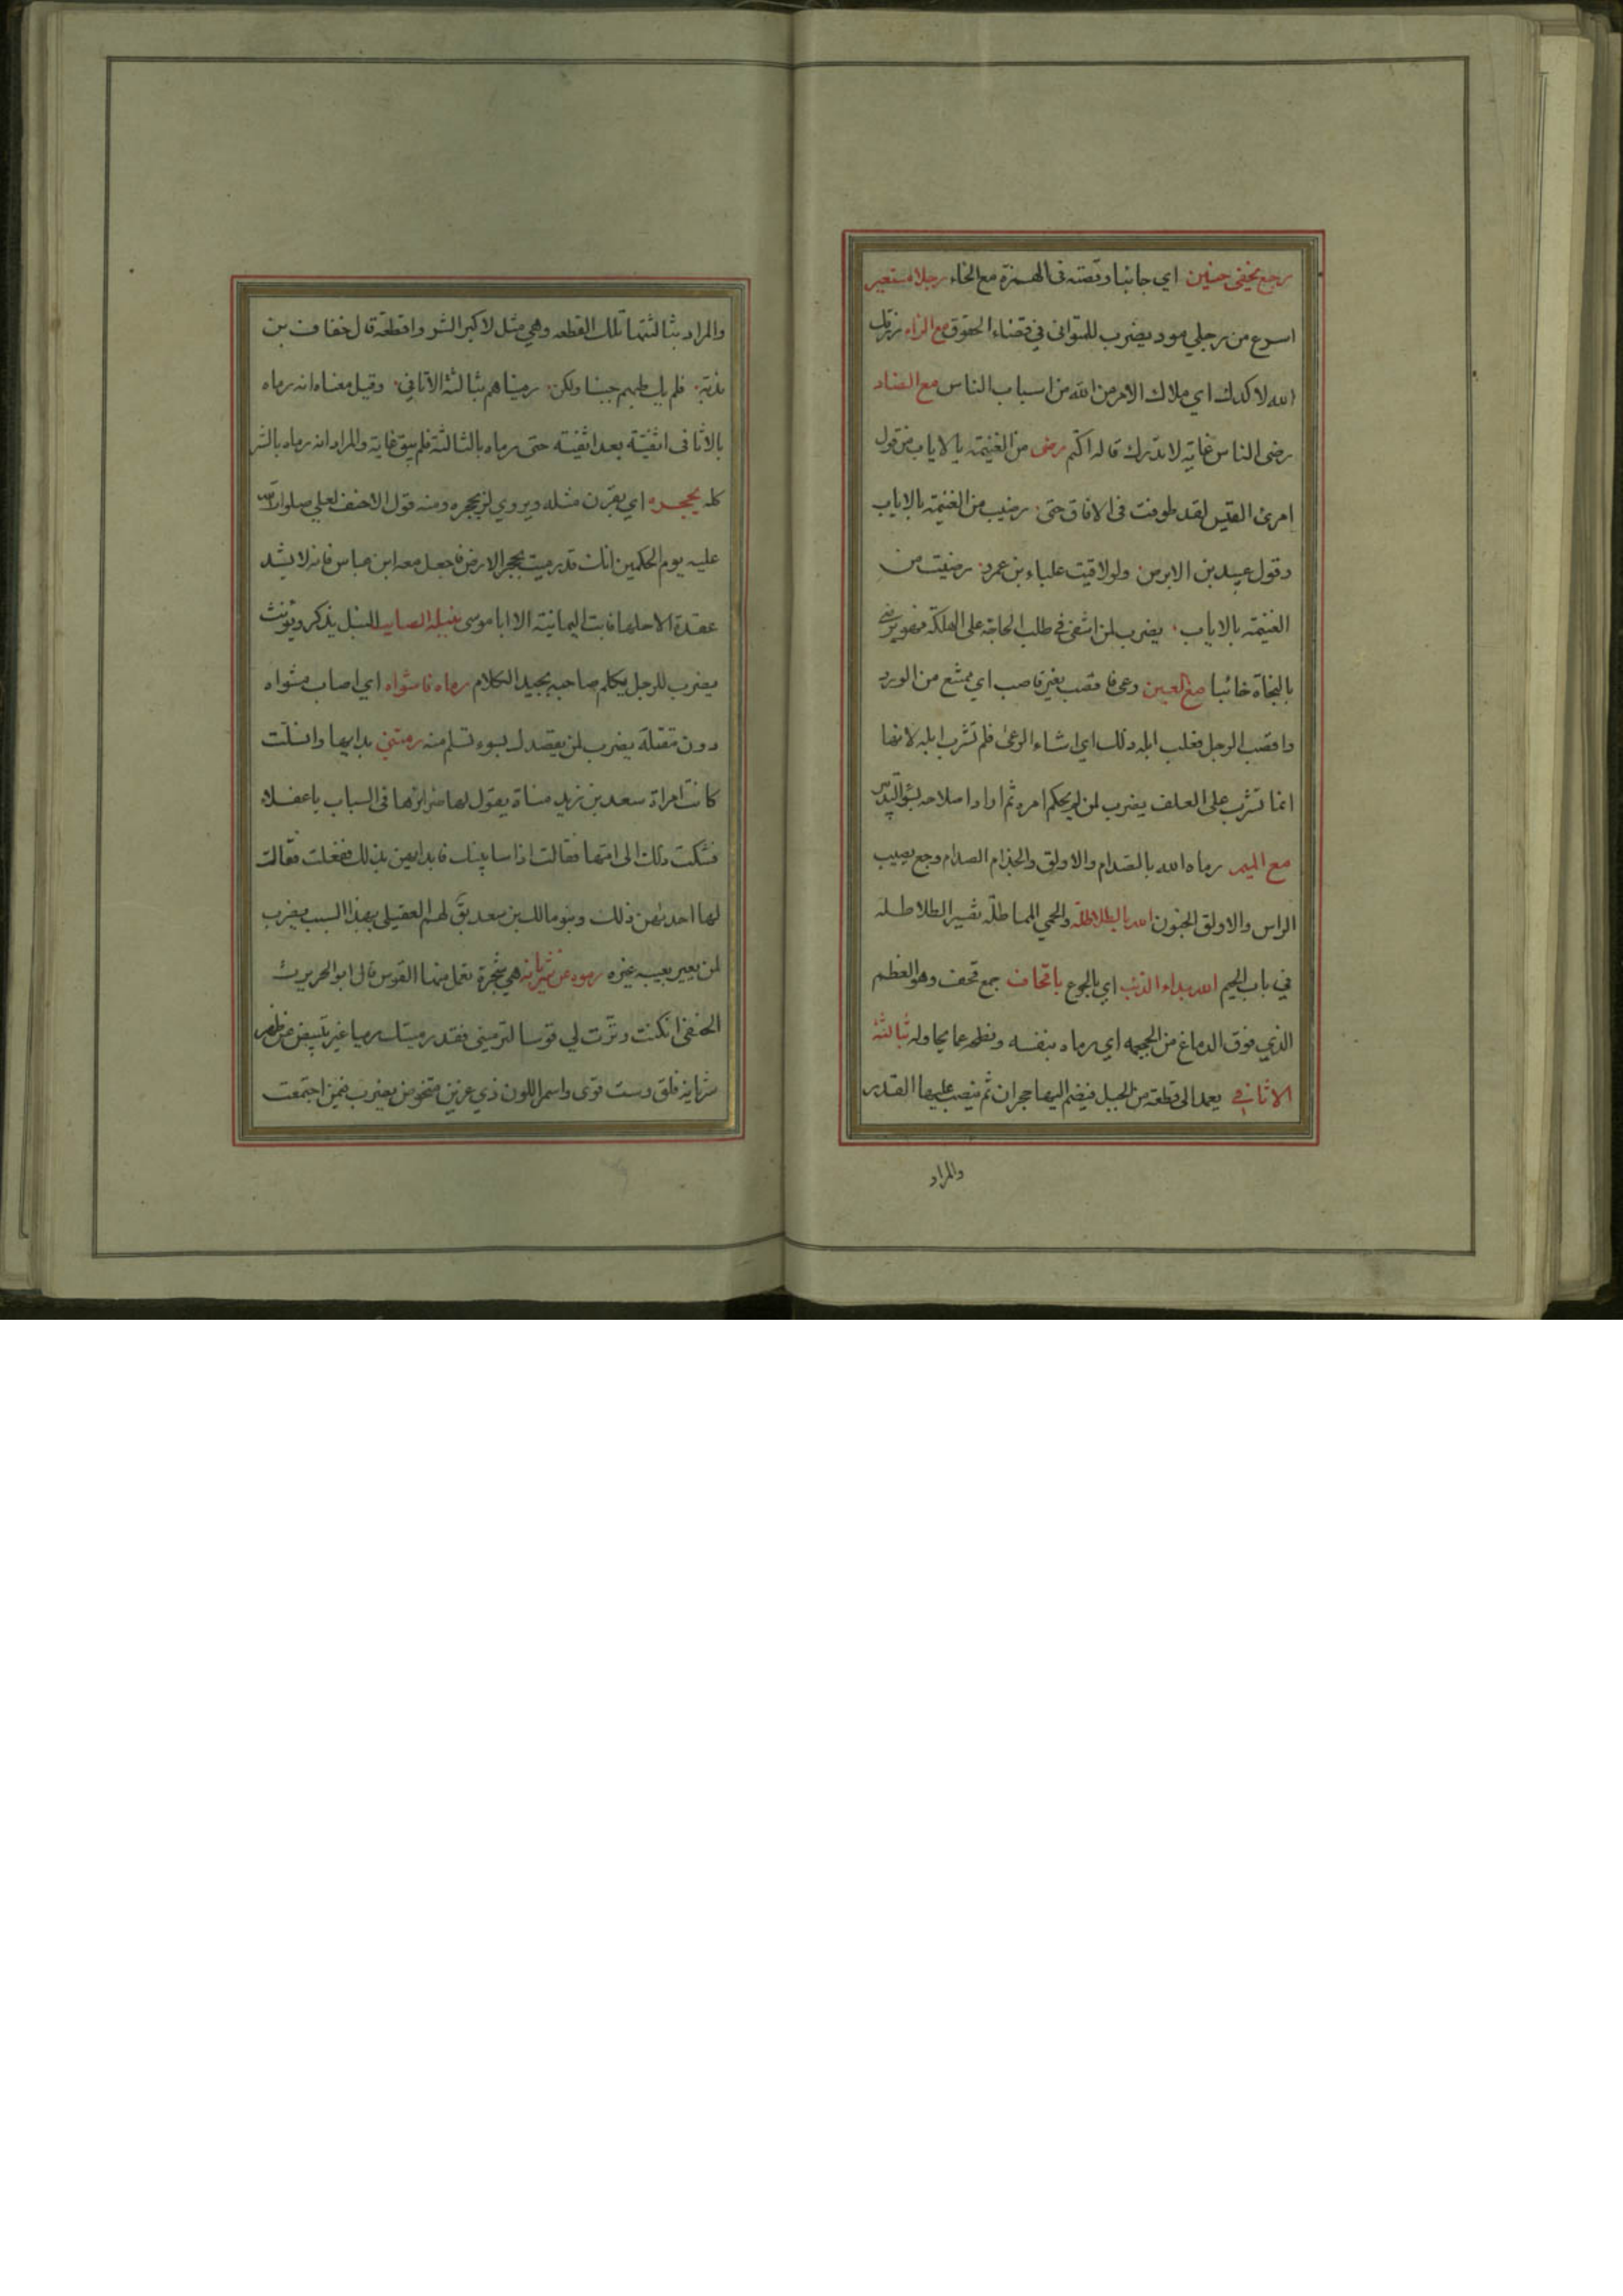 رجع بخفي حنين اي جانبا وقصته في الهمزة مع الخاء رجلا مستعير
اسرع من رجلي مود يضرب للمتواني في قضاء الحقوق مع الزاء رزق
الله لا كدك اي ملاك الامر من الله من اسباب الناس مع الضاد
رضى الناس غاية لا تدرك قاله اكثم رضى من الغنيمة بالاياب من قول
امرئ القيس لقد طوفت في الافاق حتى رضيت من الغنيمة بالاياب
وقول عبيد بن الابرص ولو لاقيت علباء بن عمرو رضيت من
الغنيمة بالاياب يضرب لمن اشفى في طلب الحاجة على الهلكة فهو يرضى
بالنجاة خائبا مع العين رعى فا قصب بغير قاصب اي ممتنع من الورد
واقصب الرجل فعلب ابله وذلك اي اساء الرعى فلم تشرب ابله لانها
انما تشرب على العلف يضرب لمن لم يحكم امره ثم اراد اصلاحه بسؤ التدبير
مع الميم رماه الله بالصدام والاولق والجذام الصدام وجع يصيب
الراس والاولق الجنون الله بالطلاطلة والحمي المماطلة تفسير الطلاطله
في باب الجيم الله بداء الذئب اي بالجوع باقحاف جمع قحف وهو العظم
الذي فوق الدماغ من الجمجمه اي رماه بنفسه ونطحه عما يحاوله بثالثة
الاثافي يعمد الى قطعة من الجبل فيضم اليها حجران ثم ينصب عليها القدر
والمراد
والمراد بثالثتها تلك القطعه وهي مثل لاكبر الشر وافظعه قال خفاف بن
ندبة فلم يك طبهم جبنا ولكن رميناهم بثالثة الاثافي وقيل معناه انه رماه
بالاثافى اثفية بعد اثفيته حتى رماه بالثالثة فلم يبق غاية والمراد انه رماه بالشر
كله بحجره اي بقرن مثله ويروي لز بحجره ومنه قول الاحنف لعلي صلوات الله
عليه يوم الحكمين انك قد رميت بحجر الارض فاجعل معه ابن عباس فانه لا يشد
عقدة الا حلها فابت اليمانية الا ابا موسى بنبله الصايب النبل يذكر ويؤنث
يضرب للرجل يكلم صاحبه بجيد الكلام رماه فاشواه اي اصاب مشواه
دون مقتله يضرب لمن يقصدك بسوء تسلم منه رمتني بدايها وانسلت
كانت امراة سعد بن زيد مناة يقول لها ضرايرها في السباب يا عفلاء
فشكت ذلك الى امها فقالت اذا ساببنك فابدايهن بذلك ففعلت فقالت
لها احديهن ذلك وبنو مالك بن سعد يق لهم العقيلي بهذا السبب يضرب
لمن يعير بعيب غيره رموه عن شريانه هي شجرة تعمل منها القوس قال ابو الحريرث
الحنفي ان كنت وترت لي قوسا لترميني فقد رميتك رميا غير تنبيض من ظهر
شريانه فلق وست قوى واسمر اللون ذي عزين متخوض يضرب فيمن اجتمعت